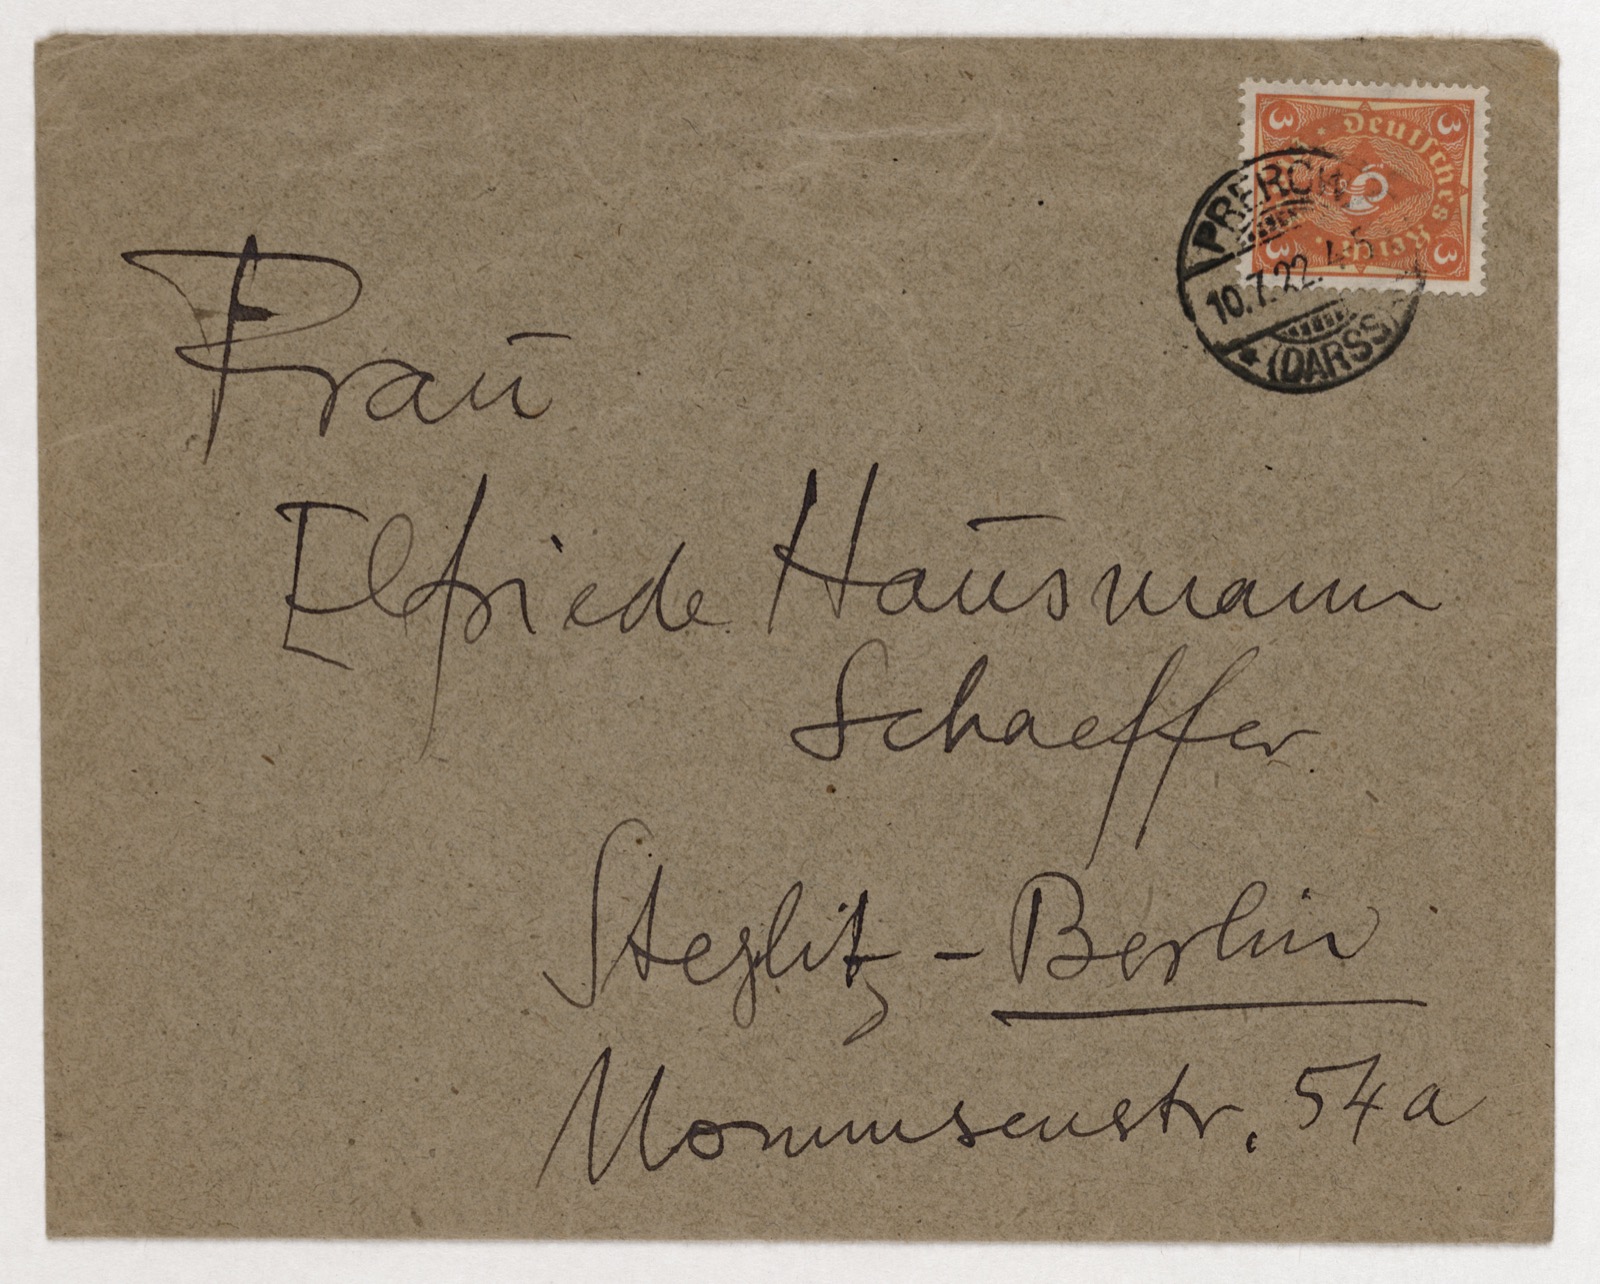 Deutsches Reich
3 3 3 3
PREROW
10.7.22. 4-5
(DARSS)
Frau
Elfriede Hausmann
Schaeffer
Steglitz - Berlin
Mommsenstr. 54a